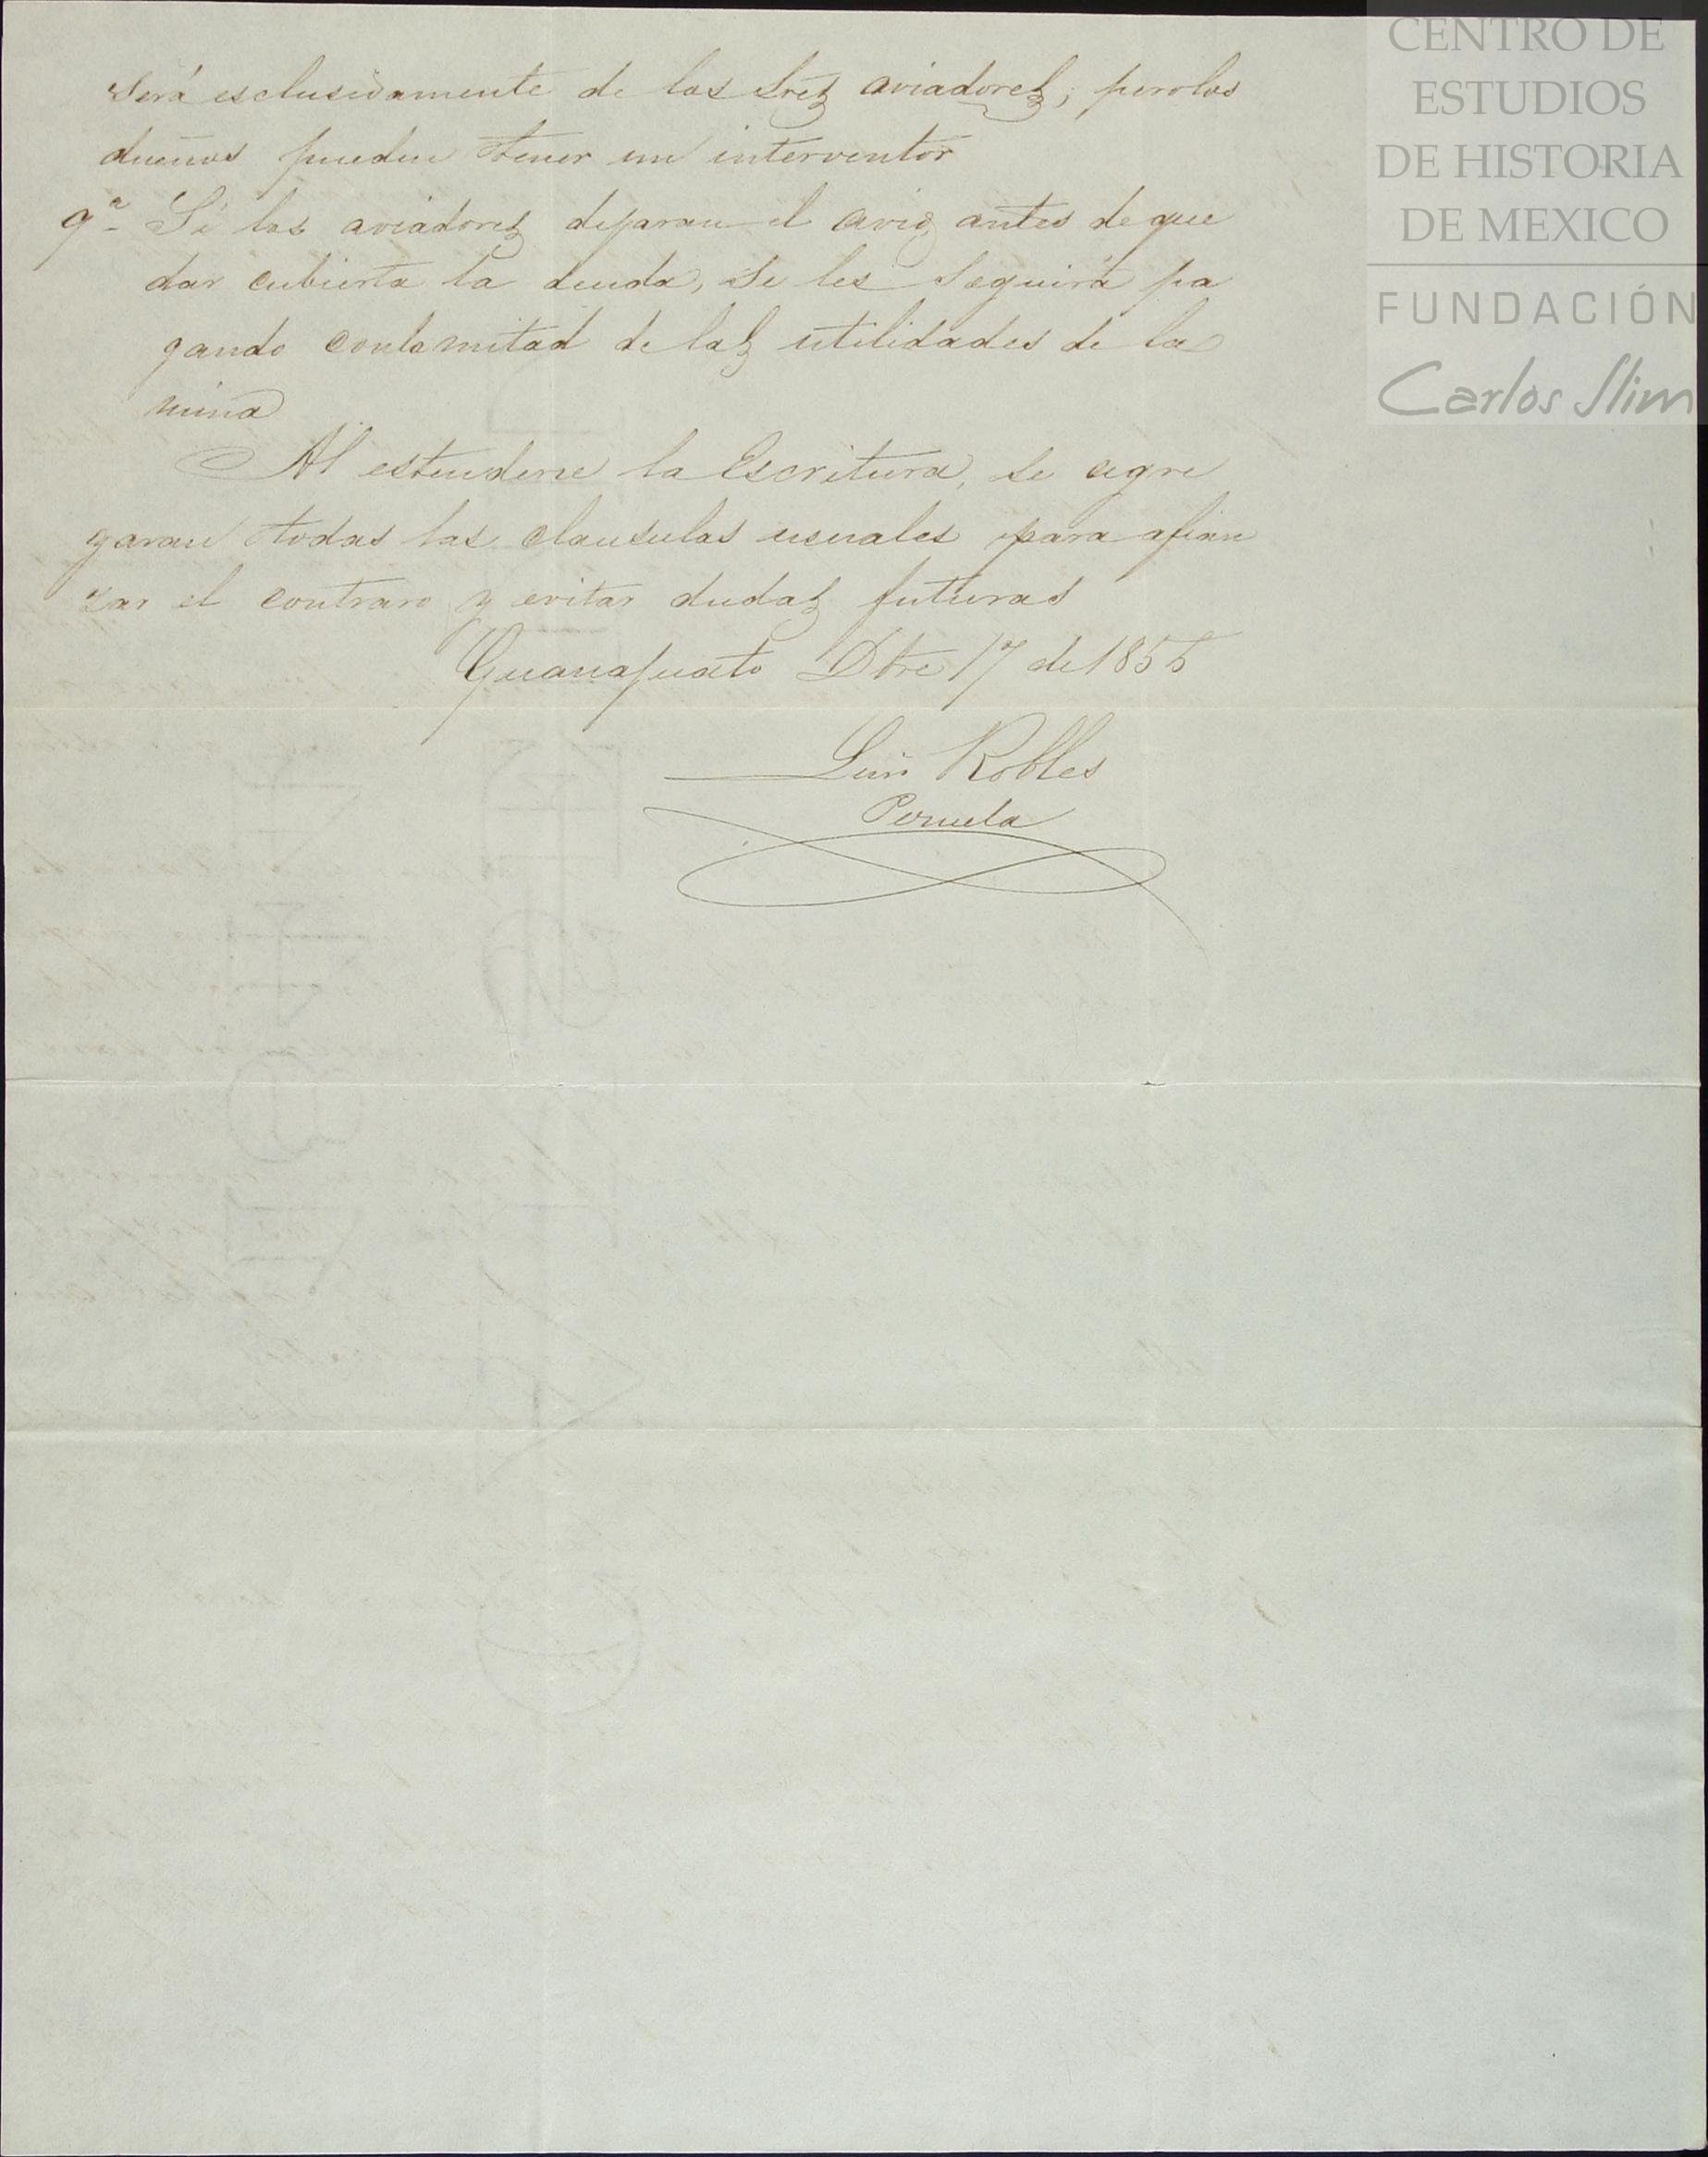 será esclusivamente de los Sres aviadores; perolos
dueños pueden tener un interventor
9ª Si los aviadores dejaran el avio antes de que
dar cubierta la deuda, se les seguirá pa
gando conlamitad de las utilidades de la
mina
Al estenderse la Escritura, se agre
garan todas las clausulas usuales para afian
zar el contraro y evitar dudas futuras
Guanajuato Dbre 17 de 1855
Luis Robles
Pezuela
CENTRO DE
ESTUDIOS
DE HISTORIA
DE MEXICO
FUNDACIÓN
Carlos Slim